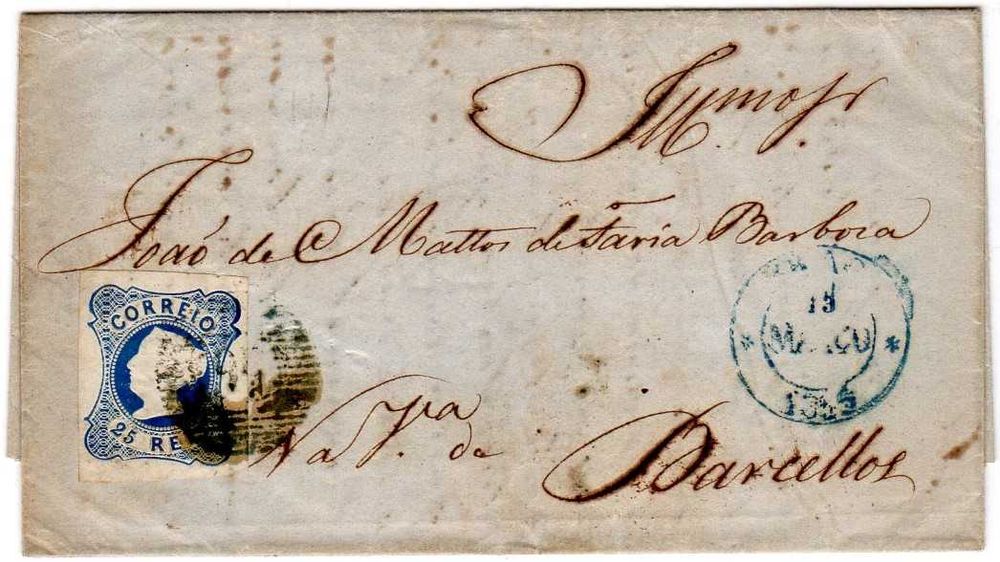 Illmo Sr
João de Mattos de Faria Barboza
CORREIO
25 RE
Na Va. de Barcellos
15
MARÇO